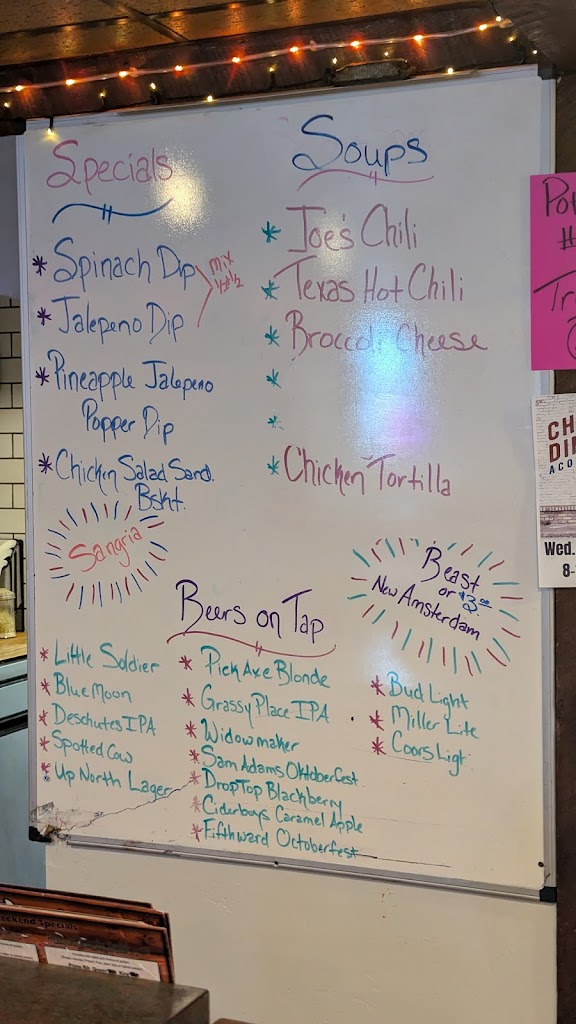 Specials
* Spinach Dip
* Jalepeno Dip
mix
1/2 & 1/2
* Pineapple Jalepeno
Popper Dip
* Chicken Salad Sand.
Bskt.
Sangria
Soups
* Joe's Chili
* Texas Hot Chili
* Broccoli Cheese
*
*
* Chicken Tortilla
Beast
or $3.00
New Amsterdam
Beers on Tap
* Little Soldier
* Blue Moon
* Deschutes IPA
* Spotted Cow
* Up North Lager
* Pick Axe Blonde
* Grassy Place IPA
* Widowmaker
* Sam Adams Oktoberfest
* Drop Top Blackberry
* Ciderboys Caramel Apple
* Fifthward Octoberfest
* Bud Light
* Miller Lite
* Coors Ligt
#
CH
DI
ACO
Wed.
8-
eekend Specials